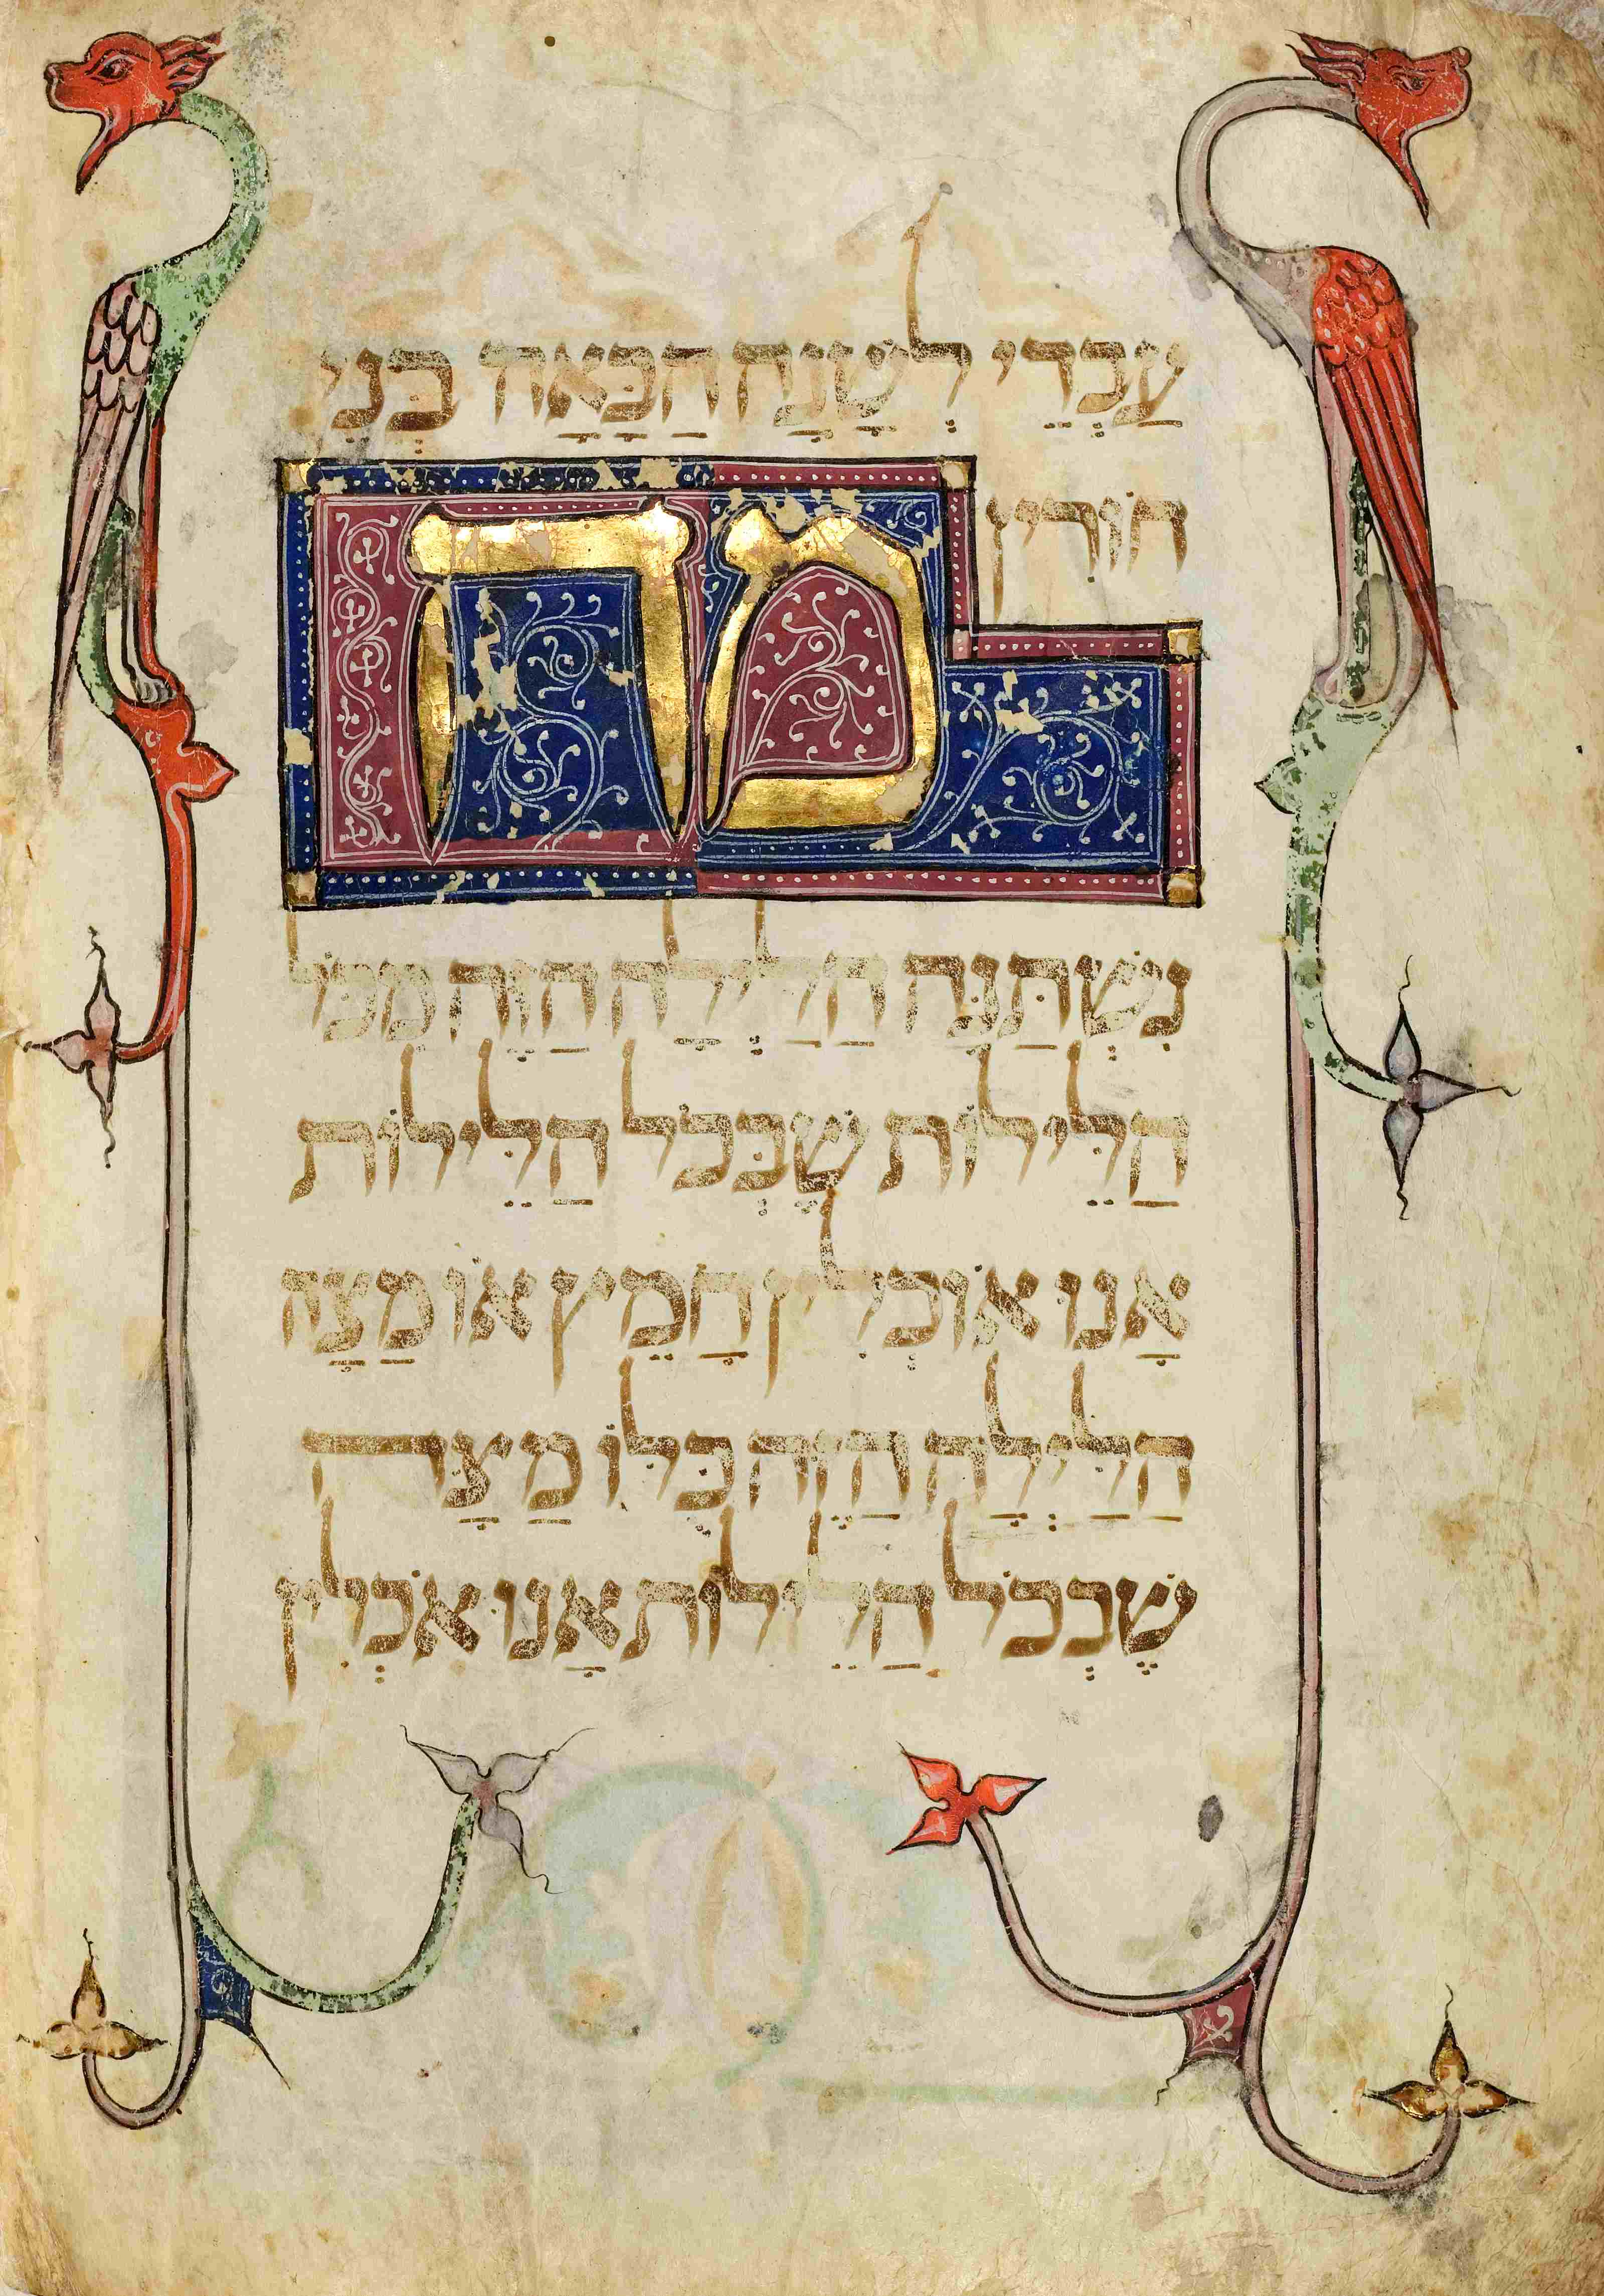 עַבְדֵי לְשָׁנָה הַבָּאָה בְּנֵי
חוֹרִין
מה
נִשְׁתַּנָּה הַלַּיְלָה הַזֶּה מִכֹּל
הַלֵּילוֹת שֶׁבְּכֹל הַלֵּילוֹת
אָנוּ אוֹכְלִין חָמֵץ אוֹ מַצָּה
הַלַּיְלָה הַזֶּה כֻּלּוֹ מַצָּה
שֶׁבְּכֹל הַלֵּילוֹת אָנוּ אֹכְלִין